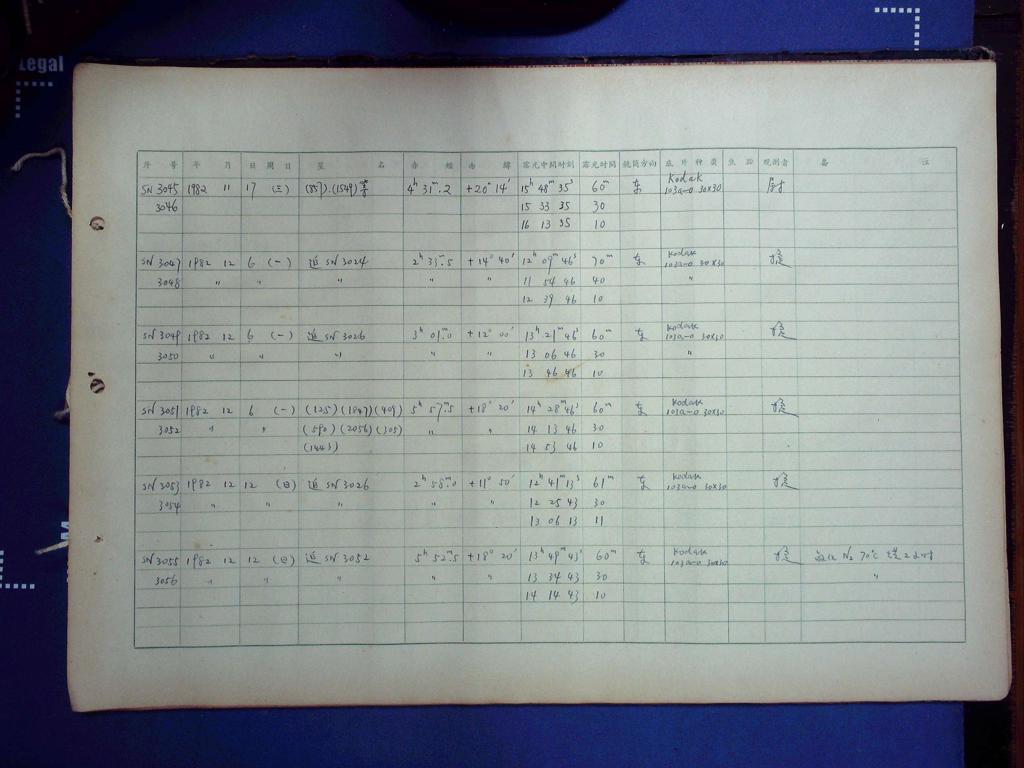 Legal
序 号 年 月 日 期 日 星 名 赤 经 赤 纬 露光中间时刻 露光时间 镜筒方向 底片种类 焦距 观测者 备 注
SN 3045 1982 11 17 (三) (857).(1549)等 4h 31m.2 +20° 14′ 15h 48m 35s 60m 东 Kodak 103a-O 30×30
3046 15 33 35 30
16 13 35 10
SN 3047 1982 12 6 (一) 追 SN 3024 2h 33m.5 +14° 40′ 12h 09m 46s 70m 东 Kodak 103a-O 30×30
3048 〃 〃 〃 〃 〃 11 54 46 40 〃
12 39 46 10
SN 3049 1982 12 6 (一) 追 SN 3026 3h 01m.0 +12° 00′ 13h 21m 46s 60m 东 Kodak 103a-O 30×30
3050 〃 〃 〃 〃 〃 13 06 46 30 〃
13 46 46 10
SN 3051 1982 12 6 (一) (125)(1847)(409) 5h 57m.5 +18° 20′ 14h 28m 46s 60m 东 Kodak 103a-O 30×30
3052 〃 〃 (590)(2056)(305) 〃 〃 14 13 46 30
(1443) 14 53 46 10
SN 3053 1982 12 12 (日) 追 SN 3026 2h 58m.0 +11° 50′ 12h 41m 13s 61m 东 Kodak 103a-O 30×30
3054 〃 〃 〃 〃 〃 12 25 43 30
13 06 13 11
SN 3055 1982 12 12 (日) 追 SN 3052 5h 52m.5 +18° 20′ 13h 49m 43s 60m 东 Kodak 103a-O 30×30 N2 70℃ 2小时
3056 〃 〃 〃 〃 〃 13 34 43 30 〃
14 14 43 10